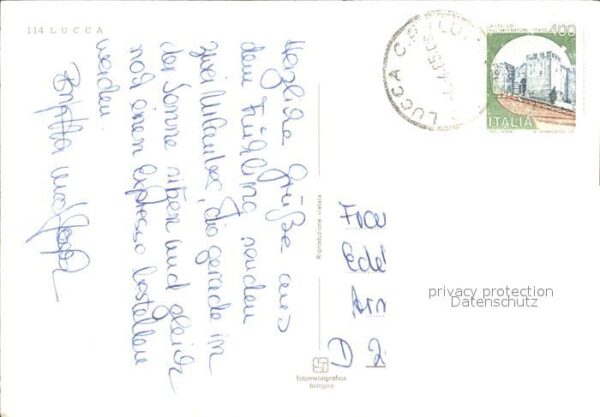 114 LUCCA
Herzliche Grüße aus
dem Frühling senden
zwei Urlauber, die gerade in
der Sonne sitzen und gleich
noch einen Espresso bestellen
werden.
Brigitta und
LUCCA C.P.
400
ITALIA
Riproduzione vietata
Frau
Edel
D 2
privacy protection
Datenschutz
fotometalgrafica
bologna